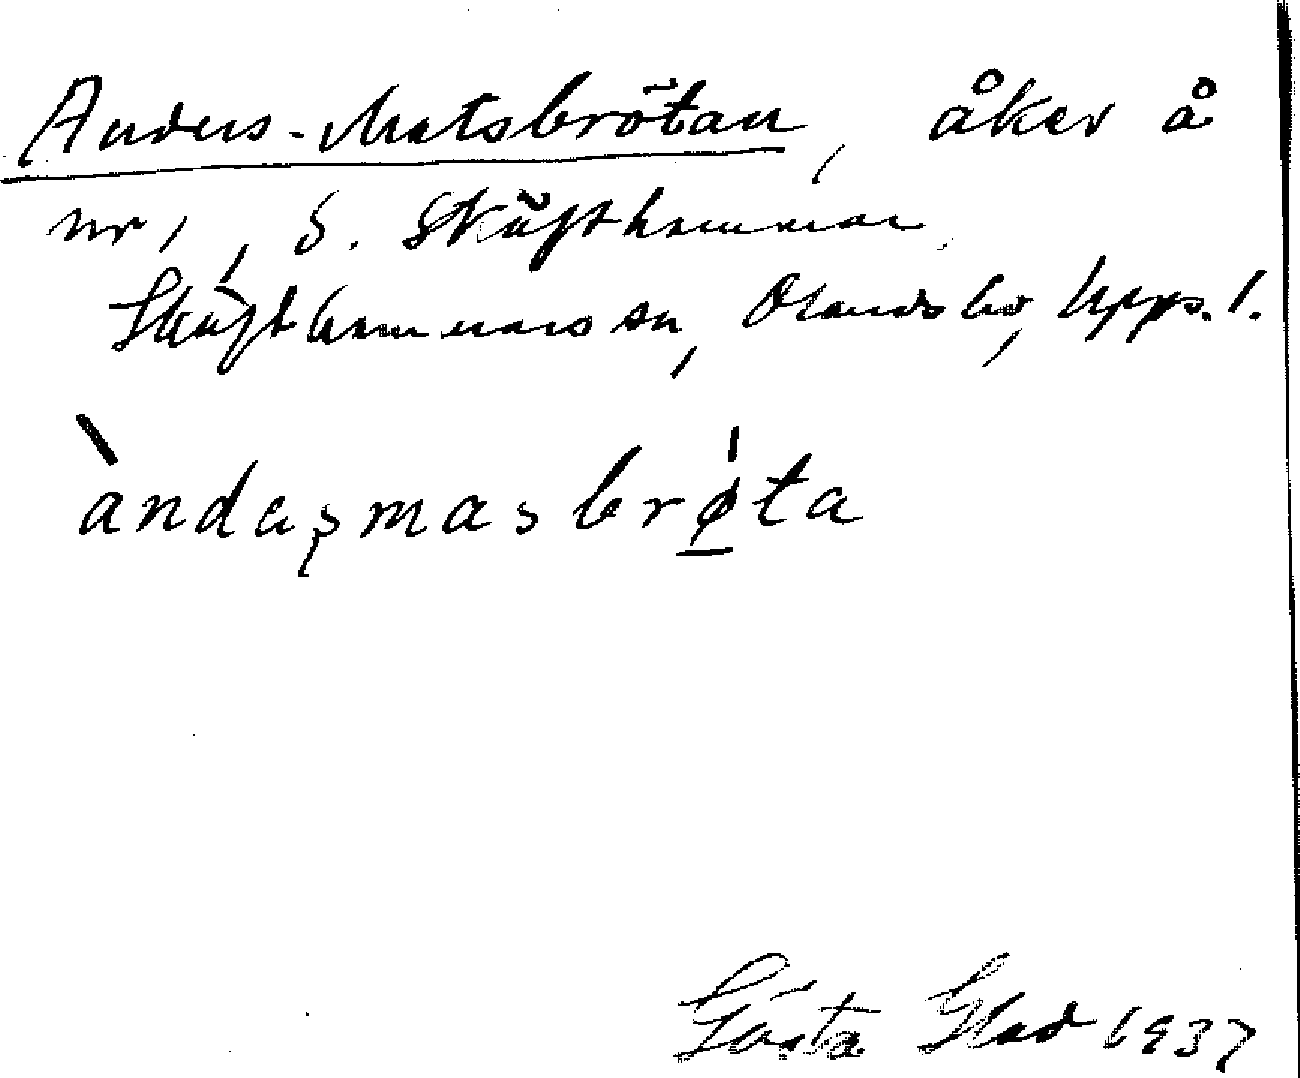 Anders-Matsbrötan, åker å
nr 1, S. Skäfthammar
Skäfthammars sn, Olands hd, Upps. l.
àndaʂmasbrø̍ta
Gösta Glad 1937